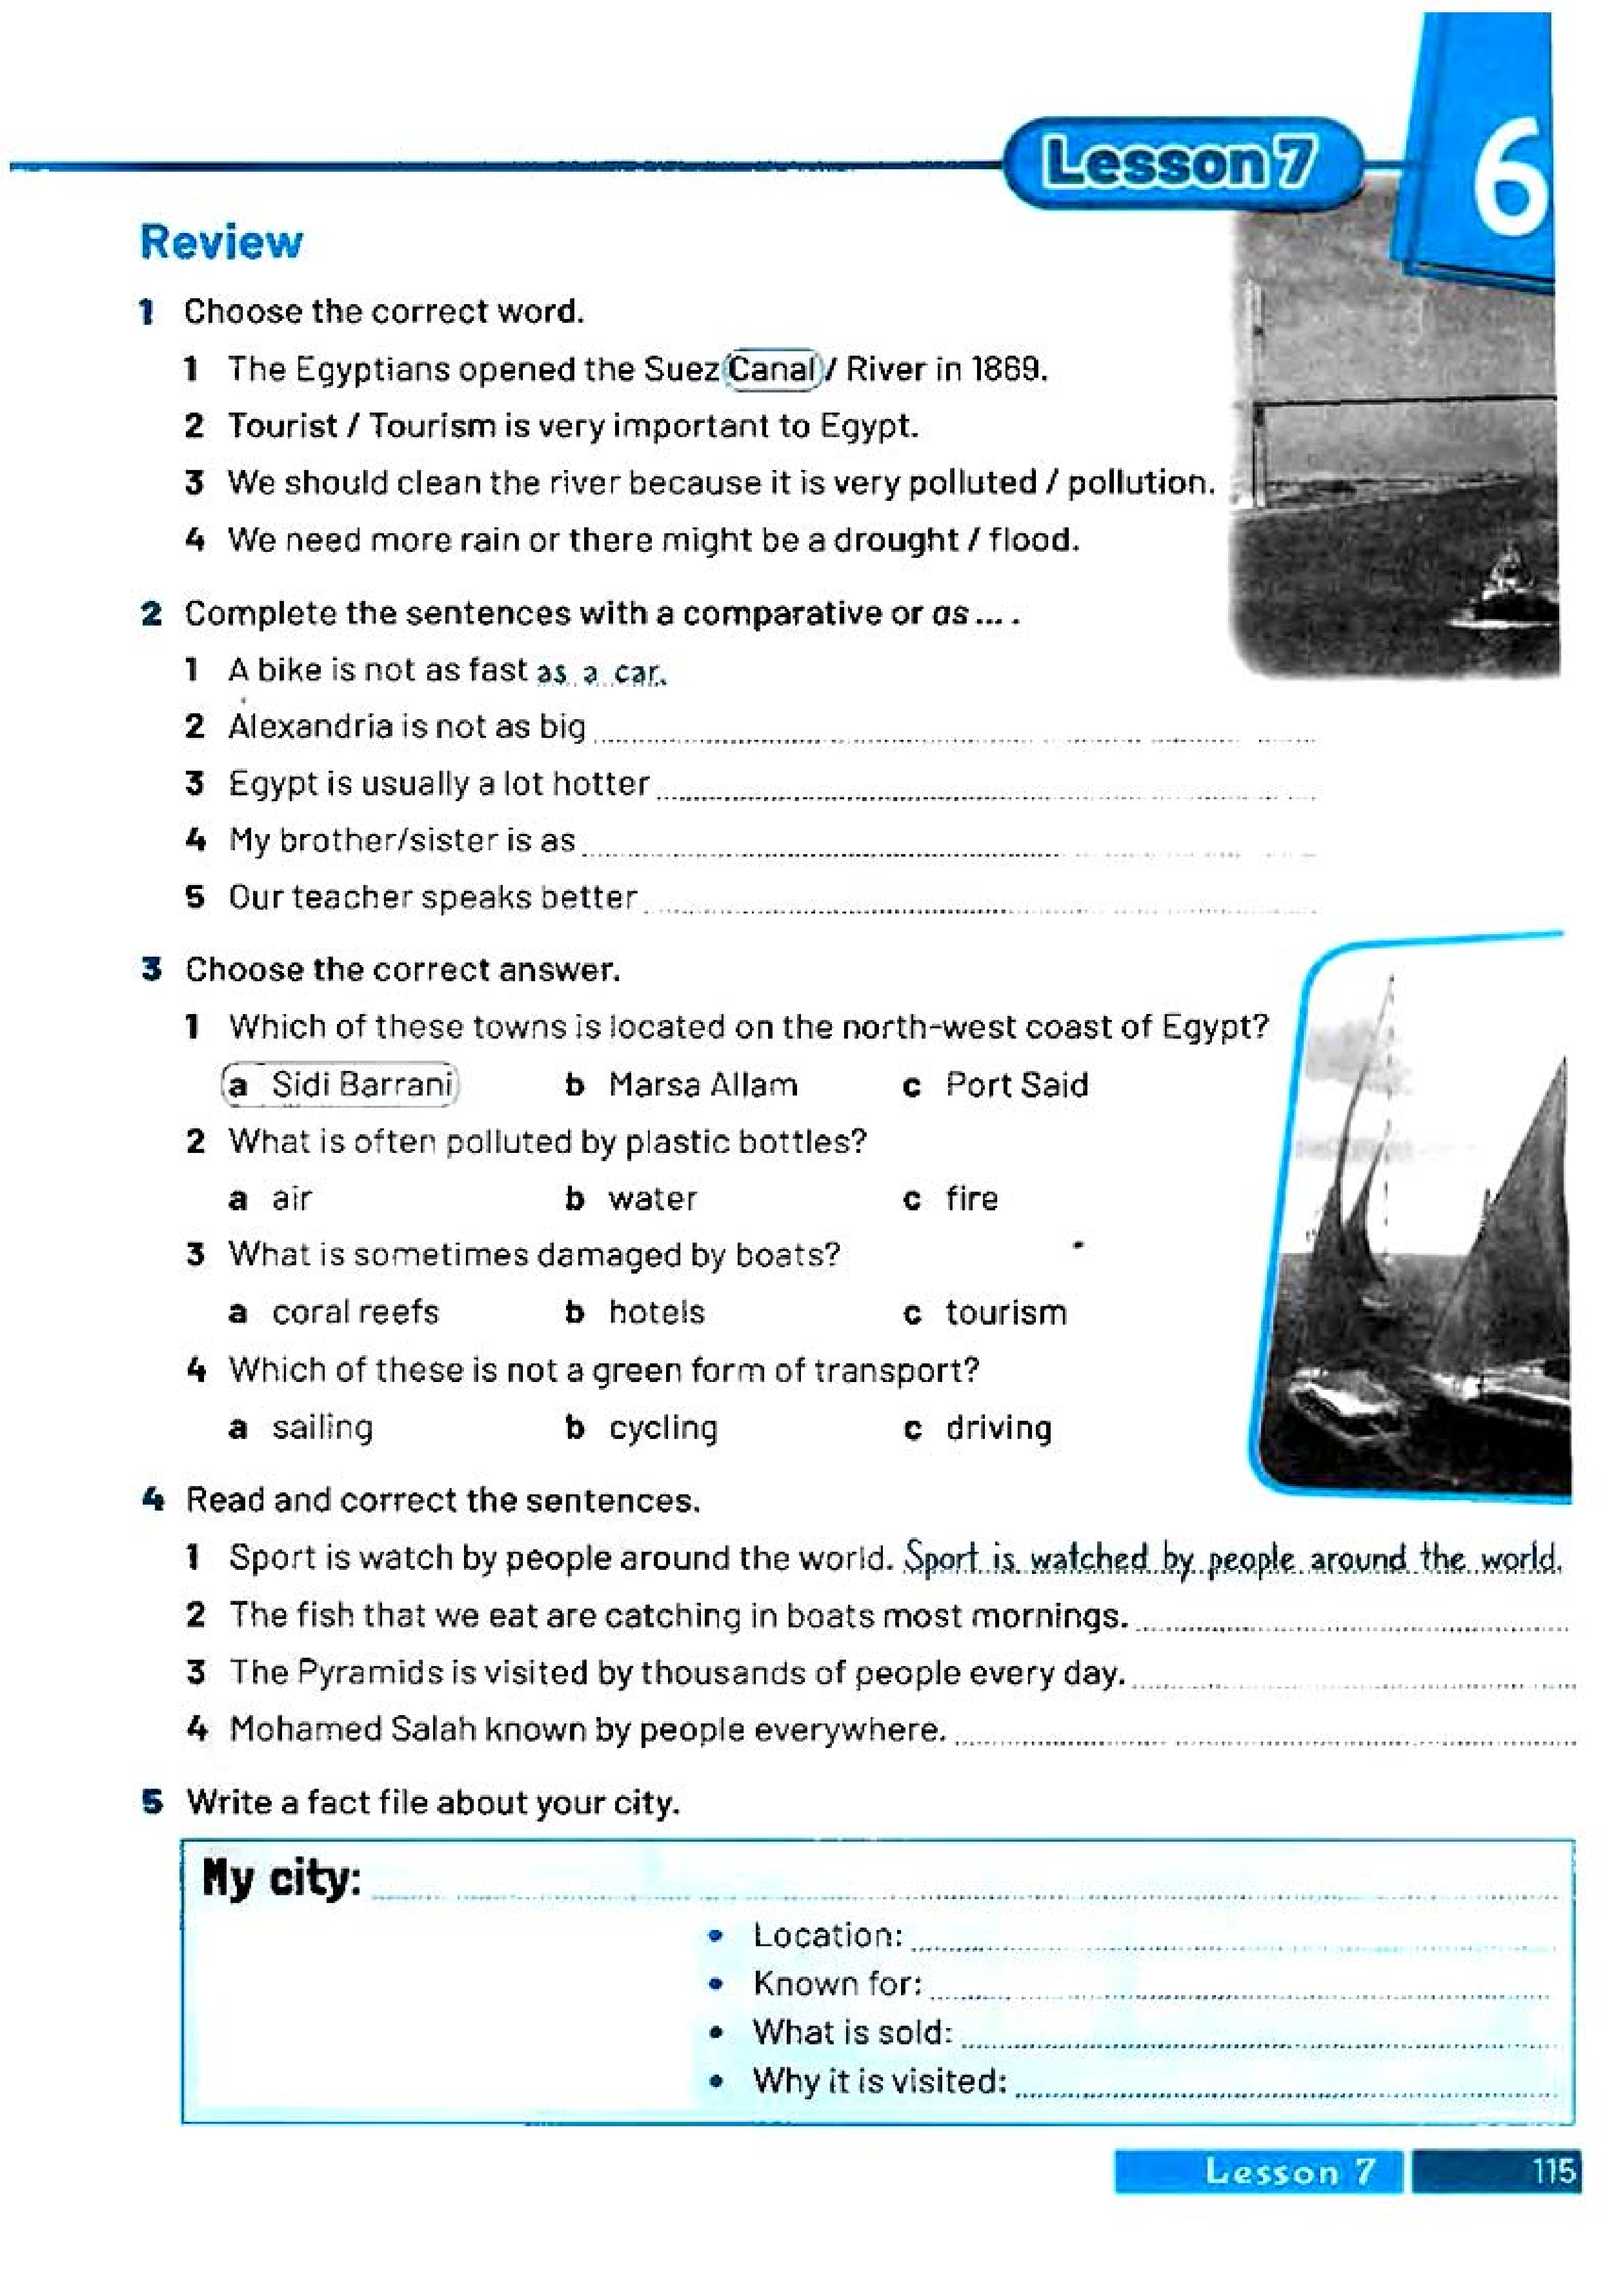 Lesson 7
6
Review
1 Choose the correct word.
1 The Egyptians opened the Suez Canal / River in 1869.
2 Tourist / Tourism is very important to Egypt.
3 We should clean the river because it is very polluted / pollution.
4 We need more rain or there might be a drought / flood.
2 Complete the sentences with a comparative or as ... .
1 A bike is not as fast as a car.
2 Alexandria is not as big
3 Egypt is usually a lot hotter
4 My brother/sister is as
5 Our teacher speaks better
3 Choose the correct answer.
1 Which of these towns is located on the north-west coast of Egypt?
a Sidi Barrani b Marsa Allam c Port Said
2 What is often polluted by plastic bottles?
a air b water c fire
3 What is sometimes damaged by boats?
a coral reefs b hotels c tourism
4 Which of these is not a green form of transport?
a sailing b cycling c driving
4 Read and correct the sentences.
1 Sport is watch by people around the world. Sport is watched by people around the world.
2 The fish that we eat are catching in boats most mornings.
3 The Pyramids is visited by thousands of people every day.
4 Mohamed Salah known by people everywhere.
5 Write a fact file about your city.
My city:
• Location:
• Known for:
• What is sold:
• Why it is visited:
Lesson 7 115